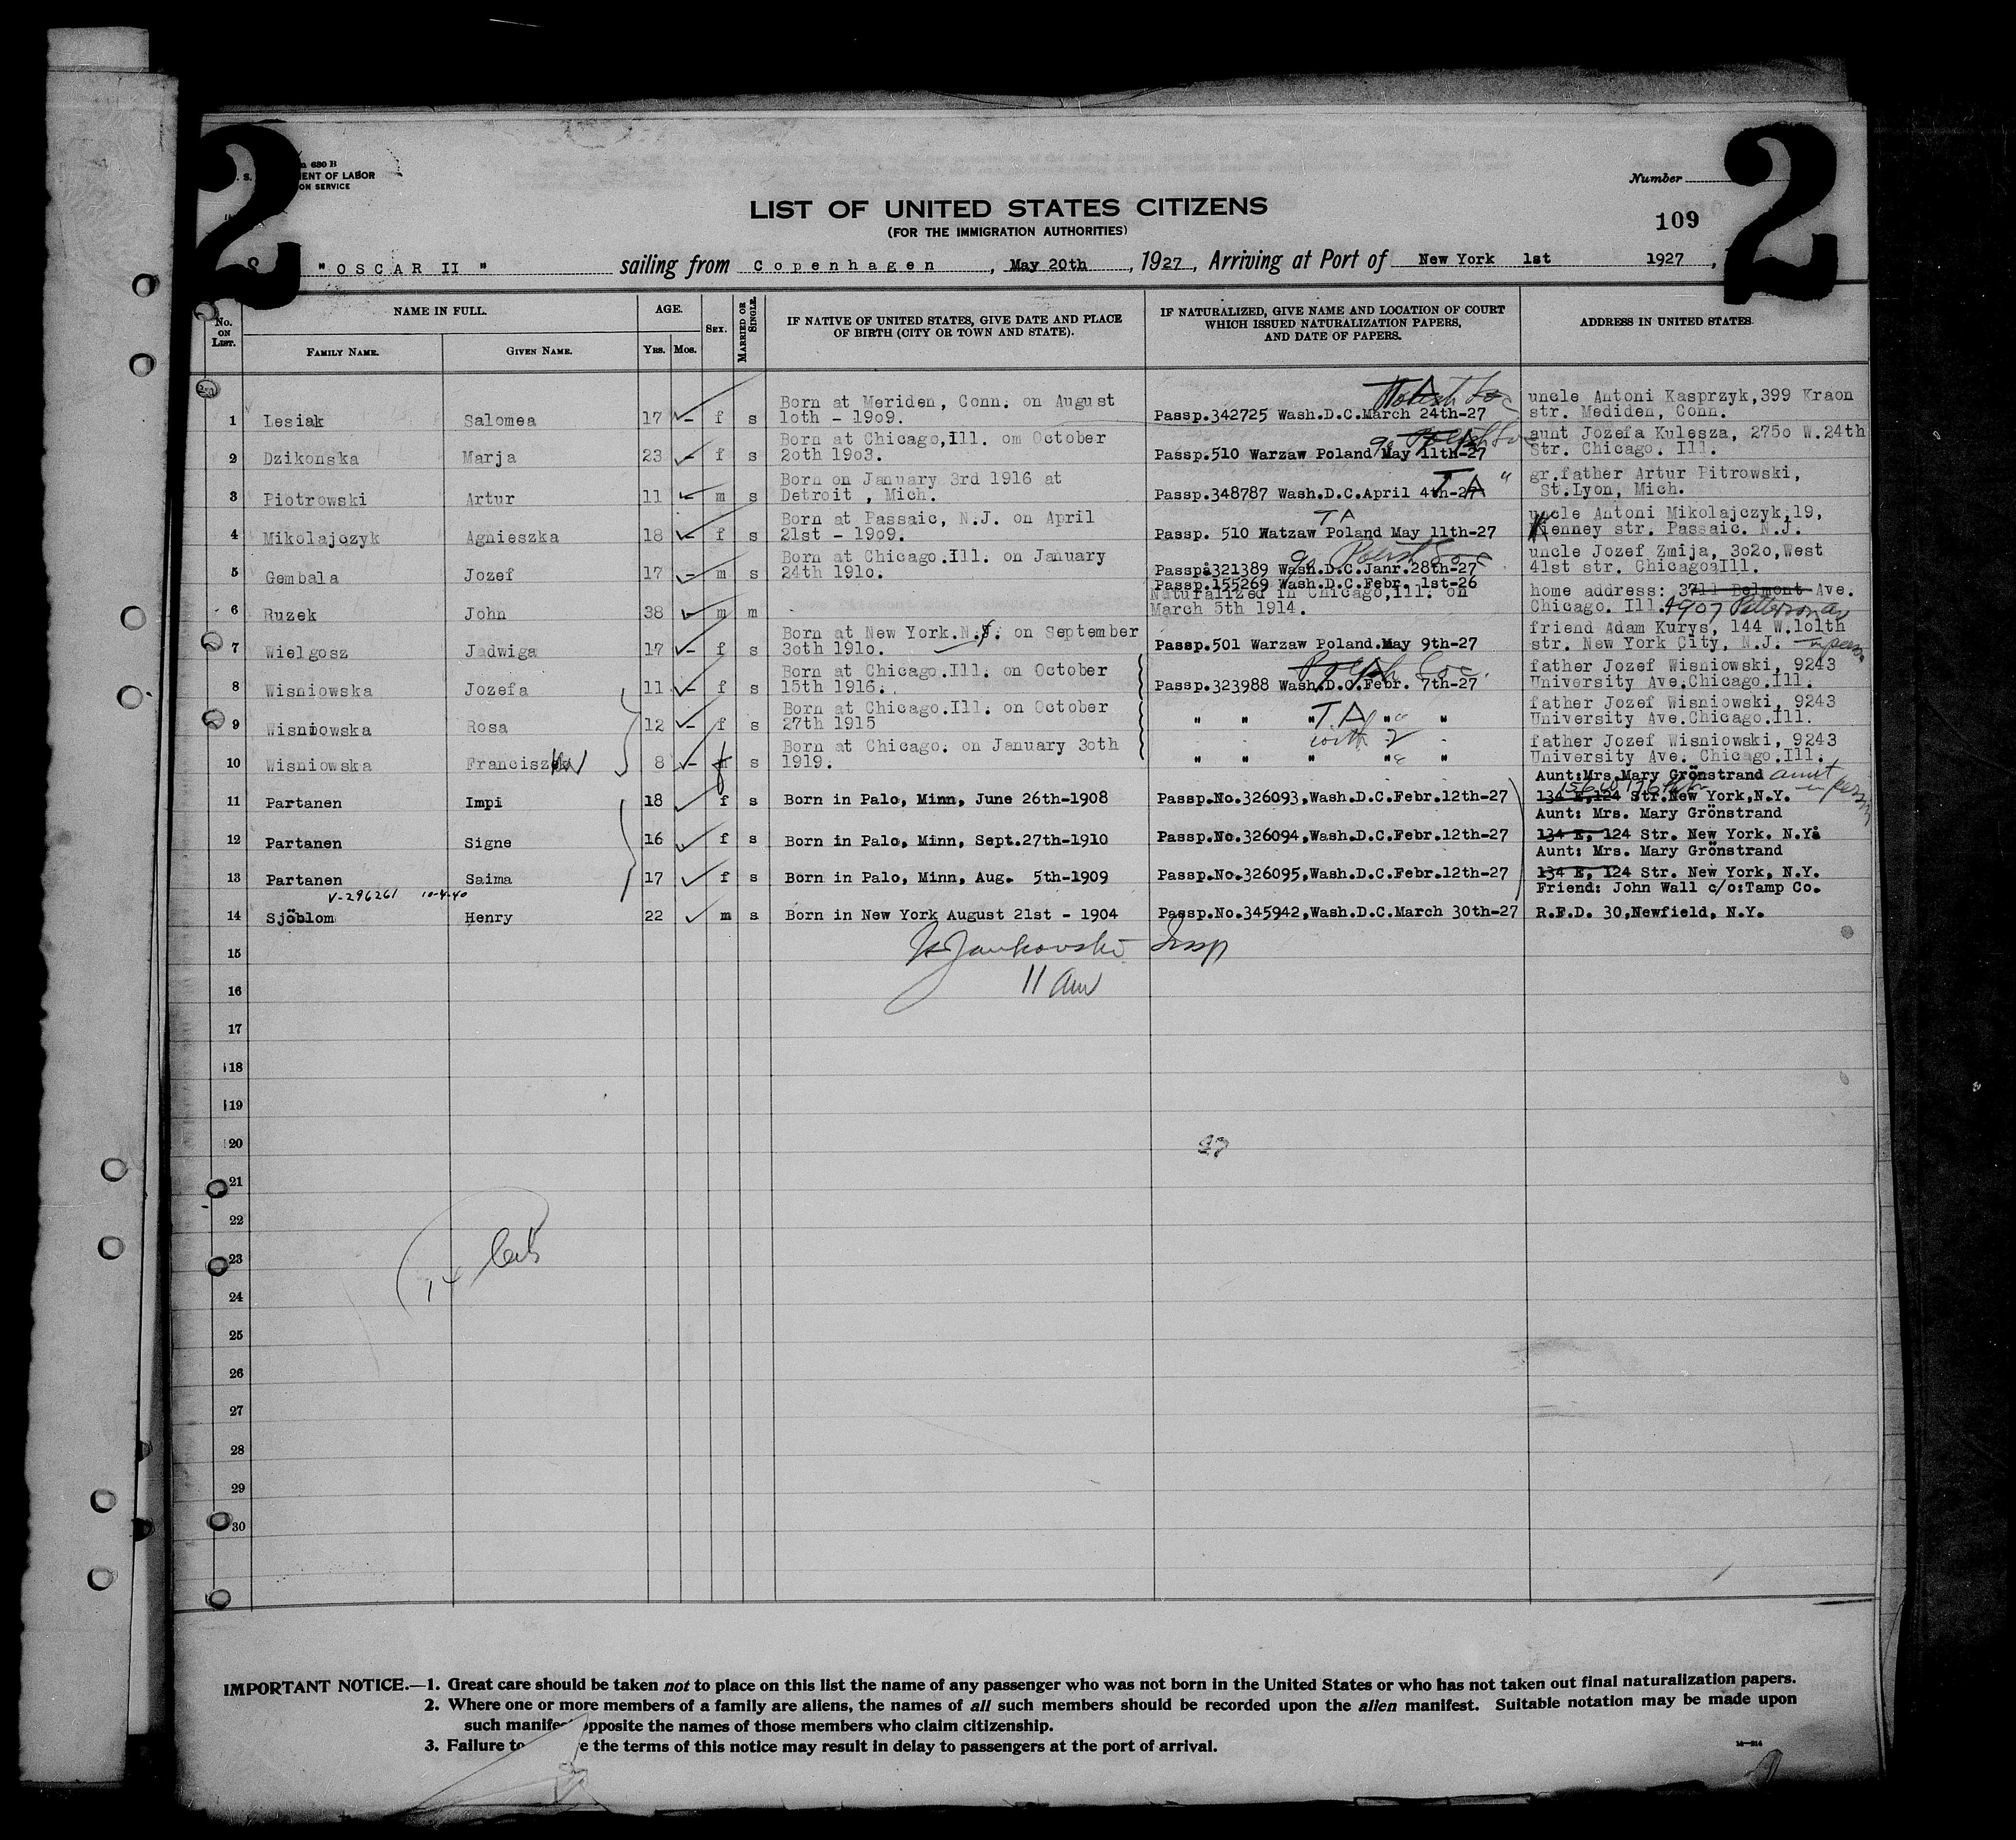 2 2
680 B
ENT OF LABOR
ON SERVICE
Number
LIST OF UNITED STATES CITIZENS
109
(FOR THE IMMIGRATION AUTHORITIES)
S "OSCAR II" sailing from Copenhagen, May 20th, 1927, Arriving at Port of New York 1st 1927,
No. ON LIST.
NAME IN FULL.
FAMILY NAME.
GIVEN NAME.
AGE.
YRS. MOS.
SEX.
MARRIED OR SINGLE.
IF NATIVE OF UNITED STATES, GIVE DATE AND PLACE
OF BIRTH (CITY OR TOWN AND STATE).
IF NATURALIZED, GIVE NAME AND LOCATION OF COURT
WHICH ISSUED NATURALIZATION PAPERS,
AND DATE OF PAPERS.
ADDRESS IN UNITED STATES
TA Polish Soc
Born at Meriden, Conn. on August uncle Antoni Kasprzyk,399 Kraon
1 Lesiak Salomea 17 - f s 1oth - 19o9. Passp.342725 Wash.D.C.March 24th-27 str. Mediden, Conn.
Born at Chicago,Ill. om October aunt Jozefa Kulesza, 275o W.24th
2 Dzikonska Marja 23 - f s 2oth 19o3. Passp.510 Warzaw Poland May 11th-27 Str. Chicago. Ill.
Born on January 3rd 1916 at T A " gr.father Artur Pitrowski,
3 Piotrowski Artur 11 - m s Detroit , Mich. Passp.348787 Wash.D.C.April 4th-27 St.Lyon, Mich.
Born at Passaic, N.J. on April TA uncle Antoni Mikolajczyk,19,
4 Mikolajczyk Agnieszka 18 - f s 21st - 19o9. Passp. 510 Watzaw Poland May 11th-27 Kenney str. Passaic. N.J.
Born at Chicago.Ill. on January uncle Jozef Zmija, 3o2o,West
5 Gembala Jozef 17 - m s 24th 191o. Passp.321389 Wash.D.C.Janr.28th-27 41st str. Chicago.Ill.
Passp.155269 Wash.D.C.Febr. 1st-26
Naturalized in Chicago,Ill. on home address: 3711 Belmont Ave.
6 Ruzek John 38 - m m March 5th 1914. Chicago. Ill. 4907 Patterson av
Born at New York.N.J. on September friend Adam Kurys, 144 W.1o1th
7 Wielgosz Jadwiga 17 - f s 3oth 191o. Passp.501 Warzaw Poland.May 9th-27 str. New York City, N.J.
Born at Chicago.Ill. on October father Jozef Wisniowski, 9243
8 Wisniowska Jozefa 11 - f s 15th 1916. Passp.323988 Wash.D.C.Febr. 7th-27 University Ave.Chicago.Ill.
Born at Chicago.Ill. on October T.A father Jozef Wisniowski, 9243
9 Wisniowska Rosa 12 - f s 27th 1915 " " " " " University Ave.Chicago.Ill.
Born at Chicago. on January 3oth with 2 father Jozef Wisniowski, 9243
10 Wisniowska Franciszek 8 - f s 1919. " " " " " University Ave. Chicago.Ill.
Aunt:Mrs.Mary Grönstrand aunt
11 Partanen Impi 18 f s Born in Palo, Minn, June 26th-1908 Passp.No.326093,Wash.D.C.Febr.12th-27 134 E,124 Str.New York,N.Y. in person
Aunt: Mrs. Mary Grönstrand
12 Partanen Signe 16 f s Born in Palo, Minn, Sept.27th-1910 Passp.No.326094,Wash.D.C.Febr.12th-27 134 E, 124 Str. New York. N.Y.
Aunt: Mrs. Mary Grönstrand
13 Partanen Saima 17 f s Born in Palo, Minn, Aug. 5th-1909 Passp.No.326095,Wash.D.C.Febr.12th-27 134 E, 124 Str. New York, N.Y.
V-296261 10-4-40 Friend: John Wall c/o:Tamp Co.
14 Sjöblom Henry 22 m s Born in New York August 21st - 1904 Passp.No.345942,Wash.D.C.March 30th-27 R.F.D. 30,Newfield, N.Y.
15 Jankovski Insp
16 11 am
17
18
19
20
21
22
23
24
25
26
27
28
29
30
IMPORTANT NOTICE.—1. Great care should be taken not to place on this list the name of any passenger who was not born in the United States or who has not taken out final naturalization papers.
2. Where one or more members of a family are aliens, the names of all such members should be recorded upon the alien manifest. Suitable notation may be made upon
such manifest opposite the names of those members who claim citizenship.
3. Failure to e the terms of this notice may result in delay to passengers at the port of arrival.
14—214